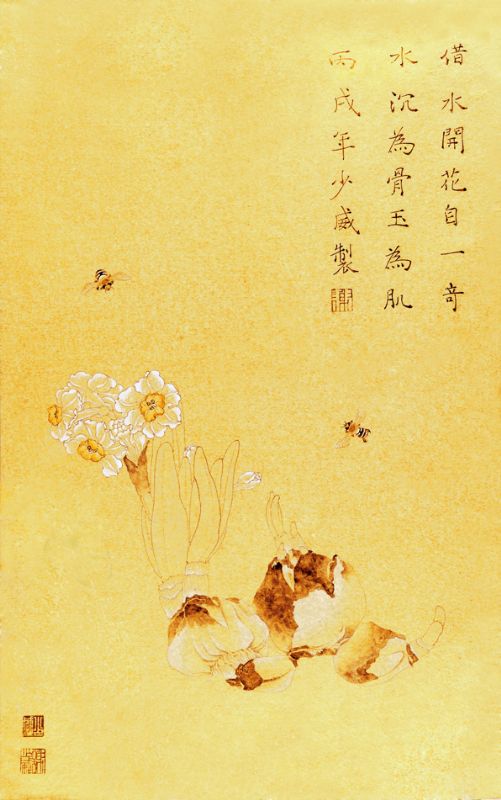 借水開花自一奇
水沉為骨玉為肌
丙戌年少威製